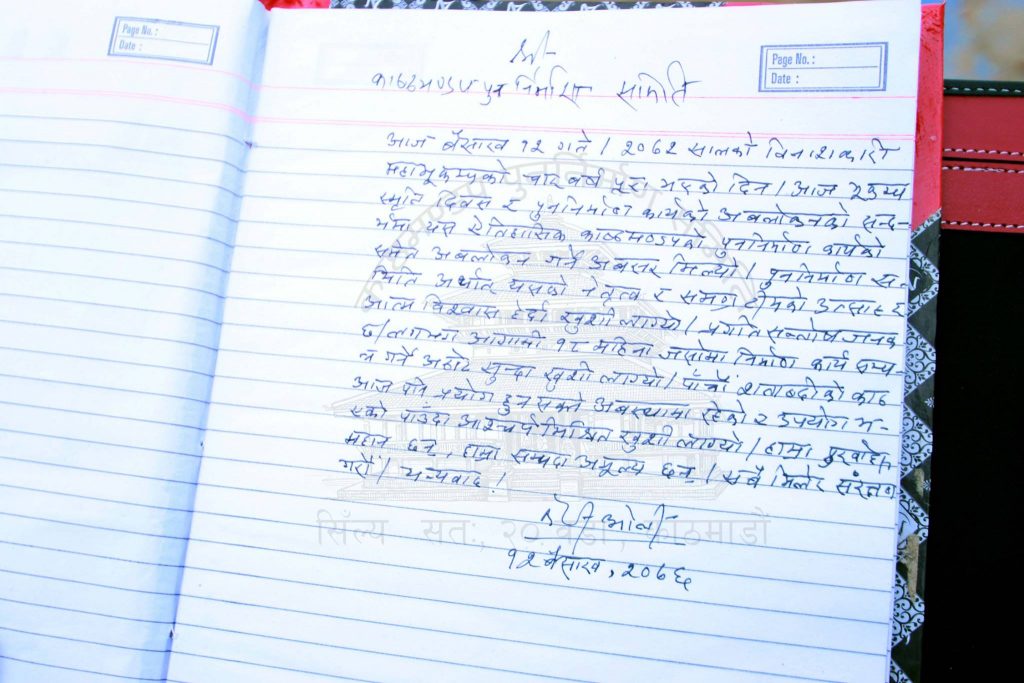 Page No. :
Date :
Page No. :
Date :
श्री
काष्ठमण्डप पुननिर्माण समिति
आज बैसाख १२ गते । २०७२ सालको विनाशकारी
महाभूकम्पको चार वर्ष पुरा भएको दिन । आज भुकम्प
स्मृति दिवस र पुननिर्माण कार्यको अवलोकनको सन्द-
र्भमा यस ऐतिहासिक काष्ठमण्डपको पुननिर्माण कार्यको
समेत अवलोकन गर्ने अवसर मिल्यो । पुननिर्माण स-
मिति अर्थात यसको नेतृत्व र समग्र टीमको उत्साह र
आत्म विश्वास हेर्दा खुशी लाग्यो । प्रगति सन्तोषजनक
छ । लगभग आगामी १८ महिना जसोमा निर्माण कार्य सम्प-
न्न गर्ने अठोट सुन्दा खुशी लाग्यो । पाँचौं शताब्दीको काठ
आज पनि प्रयोग हुन सक्ने अवस्थामा रहेको र उपयोग भ-
एको पाउँदा आश्चर्य मिश्रित खुशी लाग्यो । हाम्रा पुरखाहरु
महान छन्, हाम्रा सम्पदा अमूल्य छन् । सबै मिलेर संरक्षण
गरौं । धन्यवाद ।
ओली
१२ बैसाख, २०७६
काष्ठमण्डप पुनर्निर्माण